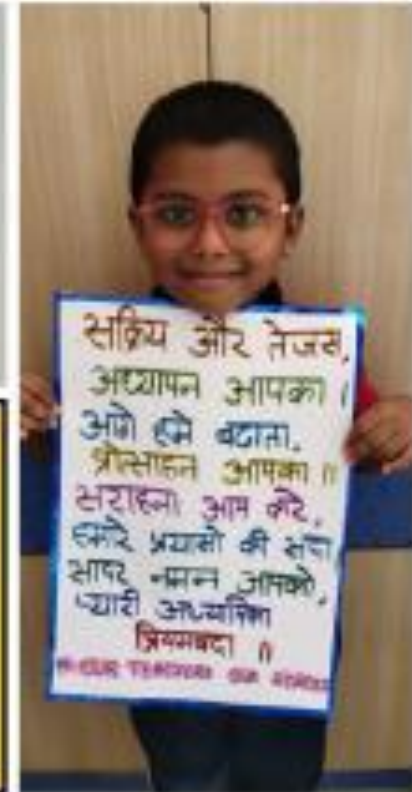 सक्रिय और तेजस,
अध्यापन आपका ।
आगे हमे बढाता,
प्रोत्साहन आपका ॥
सराहना आप करे,
हमारे प्रयासो की सदा
सादर नमन आपको,
प्यारी अध्यापिका
प्रियमवदा ॥
OUR TEACHERS OUR HEROES